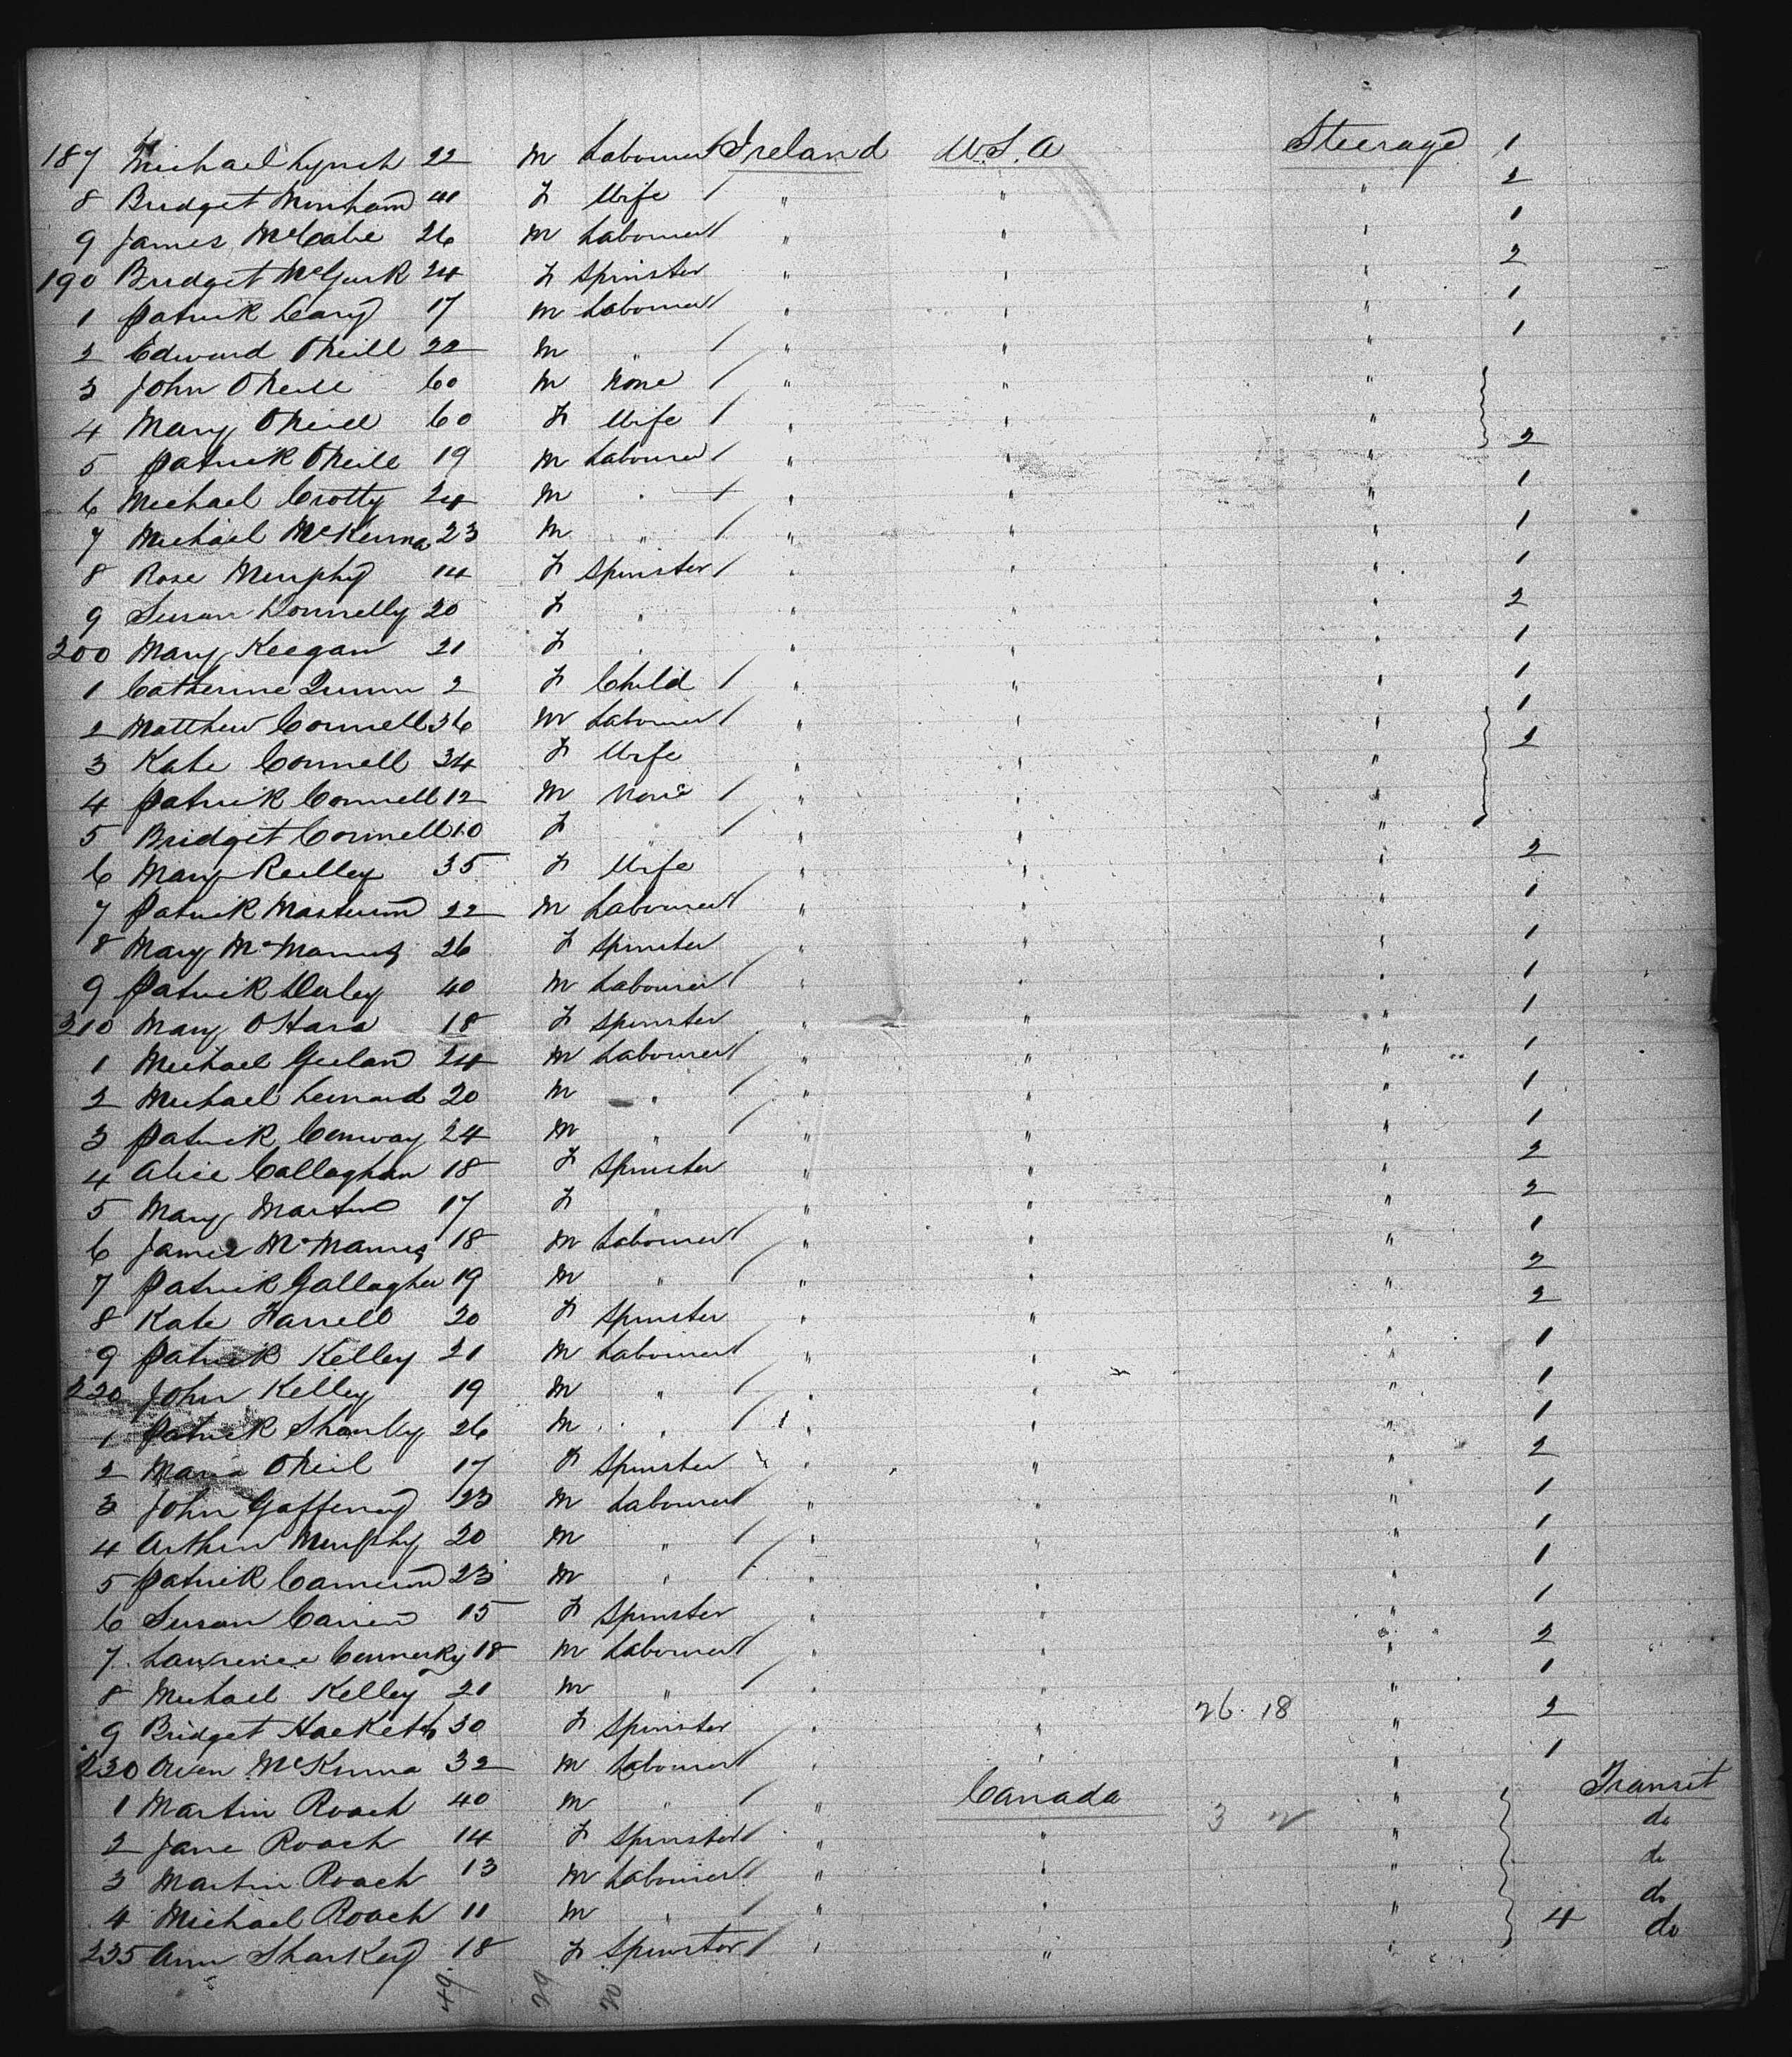 187 Michael Lynch 22 M Labourer / Ireland U.S.A Steerage 1
8 Bridget Monham 40 F Wife / " " " 2
9 James McCabe 26 M Labourer / " " " 1
190 Bridget McGurk 24 F Spinster " " " 2
1 Patrick Leary 17 M Labourer / " " " 1
2 Edward O'Neill 22 M " / " " " 1
3 John O'Neill 60 M None / " " "
4 Mary O'Neill 60 F Wife / " " "
5 Patrick O'Neill 19 M Labourer / " " " 2
6 Michael Crotty 24 M " / " " " 1
7 Michael McKenna 23 M " / " " " 1
8 Rose Murphy 14 F Spinster / " " " 1
9 Susan Donnelly 20 F " " " " 2
200 Mary Keegan 21 F " " " " 1
1 Catherine Quinn 2 F Child / " " " 1
2 Matthew Connell 36 M Labourer / " " " 1
3 Kate Connell 34 F Wife " " " 2
4 Patrick Connell 12 M None / " " "
5 Bridget Connell 10 F " / " " "
6 Mary Reilley 35 F Wife " " " 2
7 Patrick 22 M Labourer / " " " 1
8 Mary McManus 26 F Spinster " " " 1
9 Patrick Daley 40 M Labourer / " " " 1
210 Mary O'Hara 18 F Spinster " " " 1
1 Michael Geelan 24 M Labourer / " " " 1
2 Michael Lennard 20 M " / " " " 1
3 Patrick Conway 24 M " / " " " 1
4 Alice Callaghan 18 F Spinster " " " 2
5 Mary Martin 17 F " " " " 2
6 James McManus 18 M Labourer / " " " 1
7 Patrick Gallagher 19 M " / " " " 2
8 Kate Farrell 20 F Spinster " " " 2
9 Patrick Kelley 21 M Labourer / " " " 1
220 John Kelley 19 M " / " " " 1
1 Patrick Shanley 26 M " / " " " 1
2 Maria O'Neil 17 F Spinster " " " 2
3 John Gaffeney 23 M Labourer / " " " 1
4 Arthur Murphy 20 M " / " " " 1
5 Patrick Cameron 23 M " / " " " 1
6 Susan 15 F Spinster " " " 1
7 Lawrence 18 M Labourer / " " " 2
8 Michael Kelley 21 M " / " " " 1
9 Bridget Hackett 30 F Spinster " " 26 18 " 2
230 Owen McKinna 32 M Labourer / " " " 1
1 Martin Roach 40 M " / " Canada " Transit
2 Jane Roach 14 F Spinster / " " 3 2 " do
3 Martin Roach 13 M Labourer / " " " do
4 Michael Roach 11 M " / " " " do
235 Ann Sharkey 18 F Spinster / " " " 4 do
49 29 20